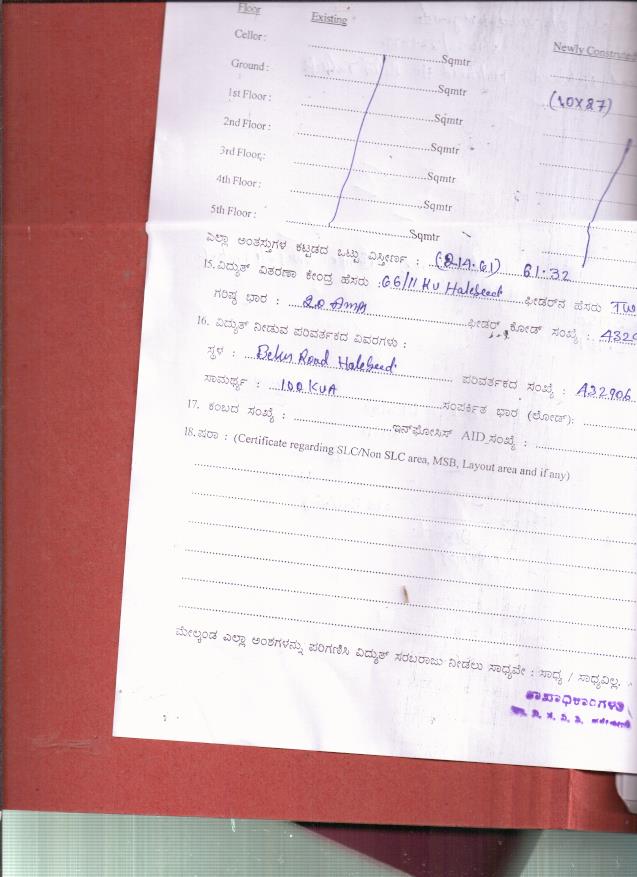 Floor Existing Newly Constructed
Cellor : ........Sqmtr
Ground : ........Sqmtr
1st Floor : ........Sqmtr (10X27)
2nd Floor : ........Sqmtr
3rd Floor : ........Sqmtr
4th Floor : ........Sqmtr
5th Floor : ........Sqmtr
ಎಲ್ಲಾ ಅಂತಸ್ತುಗಳ ಕಟ್ಟಡದ ಒಟ್ಟು ವಿಸ್ತೀರ್ಣ : (214.61) 61.32
15. ವಿದ್ಯುತ್ ವಿತರಣಾ ಕೇಂದ್ರ ಹೆಸರು : 66/11 KV Halebeed ಫೀಡರ್‌ನ ಹೆಸರು
ಗರಿಷ್ಠ ಭಾರ : 20 Amp ಫೀಡರ್ ಕೋಡ್ ಸಂಖ್ಯೆ :
16. ವಿದ್ಯುತ್ ನೀಡುವ ಪರಿವರ್ತಕದ ವಿವರಗಳು :
ಸ್ಥಳ : Belur Road Halebeed ಪರಿವರ್ತಕದ ಸಂಖ್ಯೆ : A32906
ಸಾಮರ್ಥ್ಯ : 100 KVA ಸಂಪರ್ಕಿತ ಭಾರ (ಲೋಡ್):
17. ಕಂಬದ ಸಂಖ್ಯೆ : ........ಇನ್‌ಫೋಸಿಸ್ AID ಸಂಖ್ಯೆ :
18. ಷರಾ : (Certificate regarding SLC/Non SLC area, MSB, Layout area and if any)
ಮೇಲ್ಕಂಡ ಎಲ್ಲಾ ಅಂಶಗಳನ್ನು ಪರಿಗಣಿಸಿ ವಿದ್ಯುತ್ ಸರಬರಾಜು ನೀಡಲು ಸಾಧ್ಯವೇ : ಸಾಧ್ಯ / ಸಾಧ್ಯವಿಲ್ಲ.
ಶಾಖಾಧಿಕಾರಿಗಳು